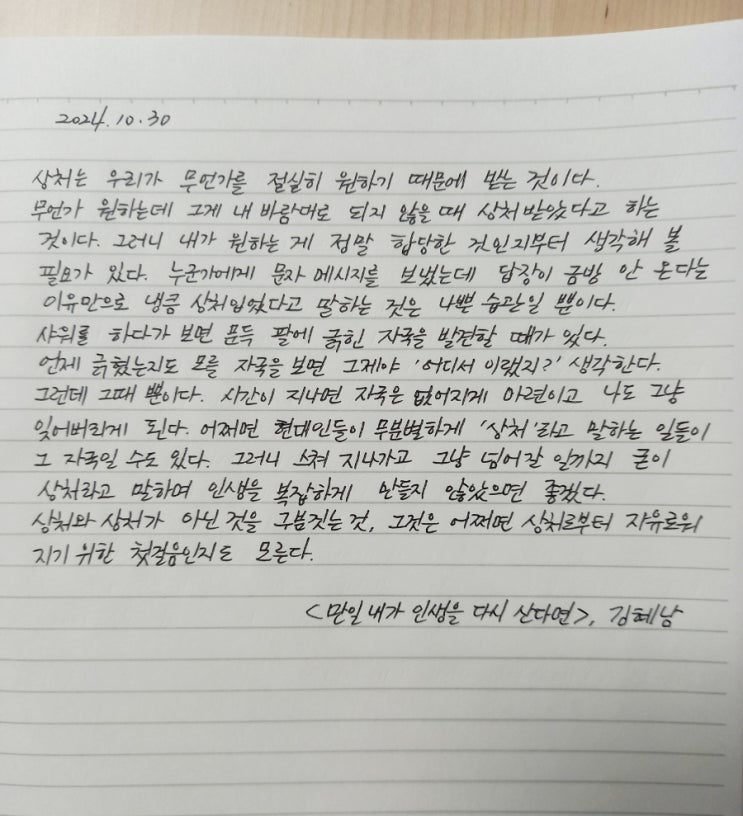 2024.10.30
상처는 우리가 무언가를 절실히 원하기 때문에 받는 것이다.
무언가 원하는데 그게 내 바람대로 되지 않을 때 상처받았다고 하는
것이다. 그러니 내가 원하는 게 정말 합당한 것인지부터 생각해 볼
필요가 있다. 누군가에게 문자 메시지를 보냈는데 답장이 금방 안 온다는
이유만으로 냉큼 상처입었다고 말하는 것은 나쁜 습관일 뿐이다.
샤워를 하다가 보면 문득 팔에 긁힌 자국을 발견할 때가 있다.
언제 긁혔는지도 모를 자국을 보면 그제야 '어디서 이랬지?' 생각한다.
그런데 그때 뿐이다. 시간이 지나면 자국은 없어지게 마련이고 나도 그냥
잊어버리게 된다. 어쩌면 현대인들이 무분별하게 '상처'라고 말하는 일들이
그 자국일 수도 있다. 그러니 스쳐 지나가고 그냥 넘어갈 일까지 굳이
상처라고 말하며 인생을 복잡하게 만들지 않았으면 좋겠다.
상처와 상처가 아닌 것을 구분짓는 것, 그것은 어쩌면 상처로부터 자유로워
지기 위한 첫걸음인지도 모른다.
<만일 내가 인생을 다시 산다면>, 김혜남